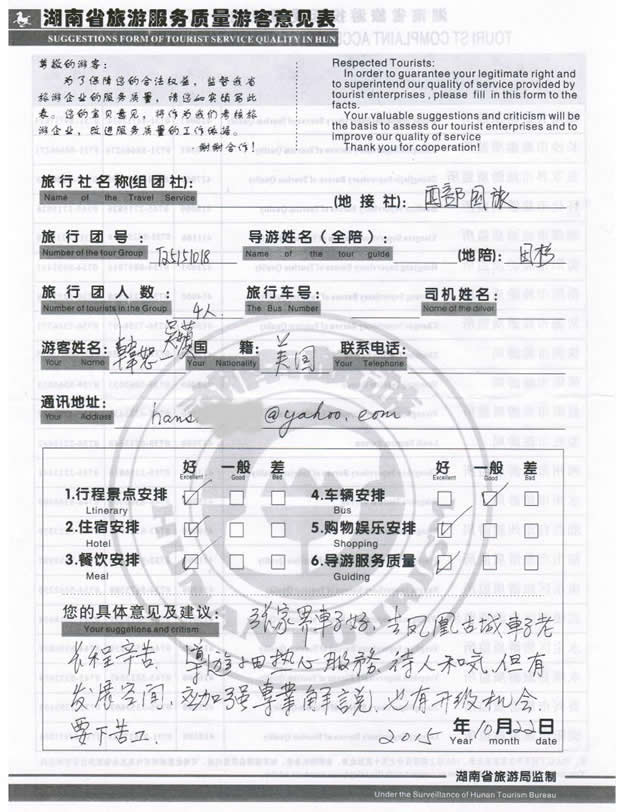 湖南省旅游服务质量游客意见表
SUGGESTIONS FORM OF TOURIST SERVICE QUALITY IN HUN
尊敬的游客：
为了保障您的合法权益，监督我省
旅游企业的服务质量，请您如实填写此
表。您的宝贵意见，将作为我们考核旅
游企业，改进服务质量的工作依据。
谢谢合作！
Respected Tourists:
In order to guarantee your legitimate right and
to superintend our quality of service provided by
tourist enterprises , please fill in this form to the
facts.
Your valuable suggestions and criticism will be
the basis to assess our tourist enterprises and to
improve our quality of service
Thank you for cooperation!
旅行社名称(组团社):
Name of the Travel Service
(地接社): 西部国旅
旅行团号：
Number of the tour Group
导游姓名（全陪）：
Name of the tour guide
(地陪): 田
旅行团人数：
Number of tourists in the Group
4人
旅行车号：
The Bus Number
司机姓名：
Name of the driver
游客姓名：
Your Name
韓恕
国籍： 美国
Your Nationality
联系电话：
Your Telephone
通讯地址：
Your Address
hans @yahoo.com
好 一般 差 好 一般 差
Excellent Good Bad Excellent Good Bad
1.行程景点安排 4.车辆安排
Ltinerary Bus
2.住宿安排 5.购物娱乐安排
Hotel Shopping
3.餐饮安排 6.导游服务质量
Meal Guiding
您的具体意见及建议： 张家界車子好，去凤凰古城車子老
Your suggetions and critism
長程辛苦. 導遊田热心服務，待人和気，但有
发展空间，应加强專業解說，也有升级机会
要下苦工.
2015 年 10 月 22 日
Year month date
湖南省旅游局监制
Under the Surveillance of Hunan Tourism Bureau